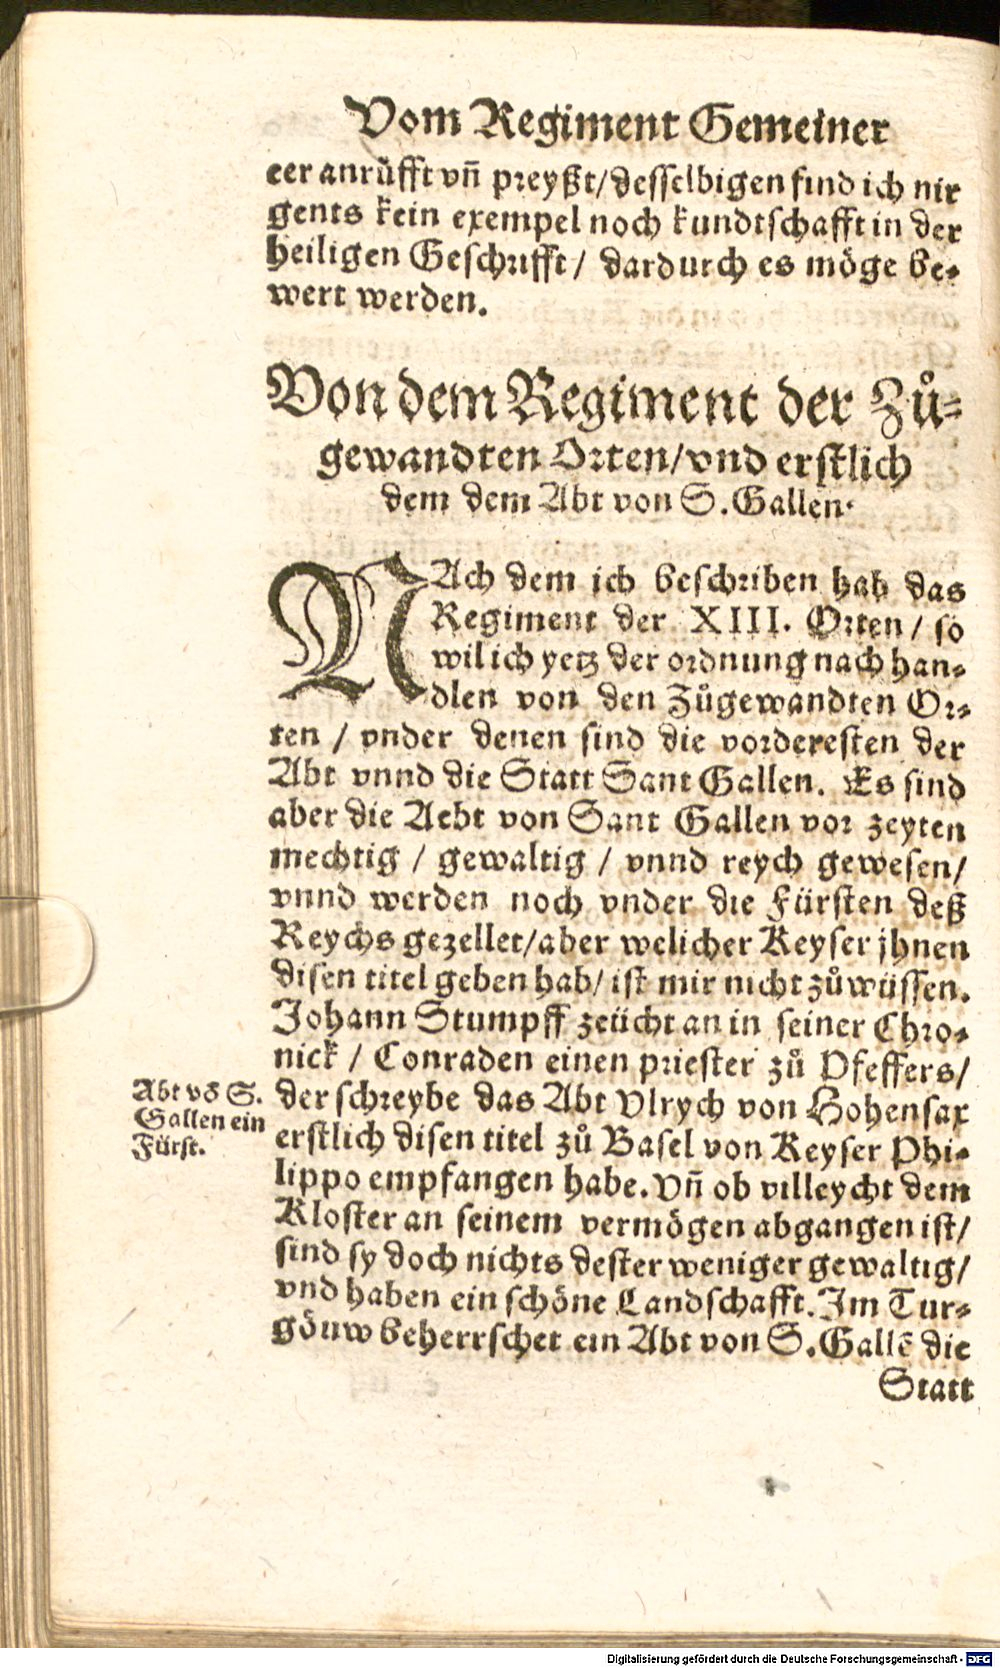 Vom Regiment Gemeiner
eer anrüfft vñ preyßt/desselbigen find ich nir
gents kein exempel noch kundtschafft in der
heiligen Geschrifft / dardurch es möge be-
wert werden.
Von dem Regiment der Zů-
gewandten Orten/vnd erstlich
dem dem Abt von S. Gallen.
NAch dem ich beschriben hab das
Regiment der XIII. Orten / so
wil ich yetz der ordnung nach han-
dlen von den Zůgewandten Or-
ten / vnder denen sind die vorderesten der
Abt vnnd die Statt Sant Gallen. Es sind
aber die Aebt von Sant Gallen vor zeyten
mechtig / gewaltig / vnnd reych gewesen/
vnnd werden noch vnder die Fürsten deß
Reychs gezellet/aber welicher Keyser jhnen
disen titel geben hab/ ist mir nicht zůwüssen.
Johann Stumpff zeücht an in seiner Chro-
nick / Conraden einen priester zů Pfeffers/
der schreybe das Abt Vlrych von Hohensax
erstlich disen titel zů Basel von Keyser Phi-
lippo empfangen habe. Vñ ob villeycht dem
Kloster an seinem vermögen abgangen ist/
sind sy doch nichts dester weniger gewaltig/
vnd haben ein schöne Landschafft. Im Tur-
göuw beherrschet ein Abt von S. Gallẽ die
Statt
Abt võ S.
Gallen ein
Fürst.
Digitalisierung gefördert durch die Deutsche Forschungsgemeinschaft - DFG